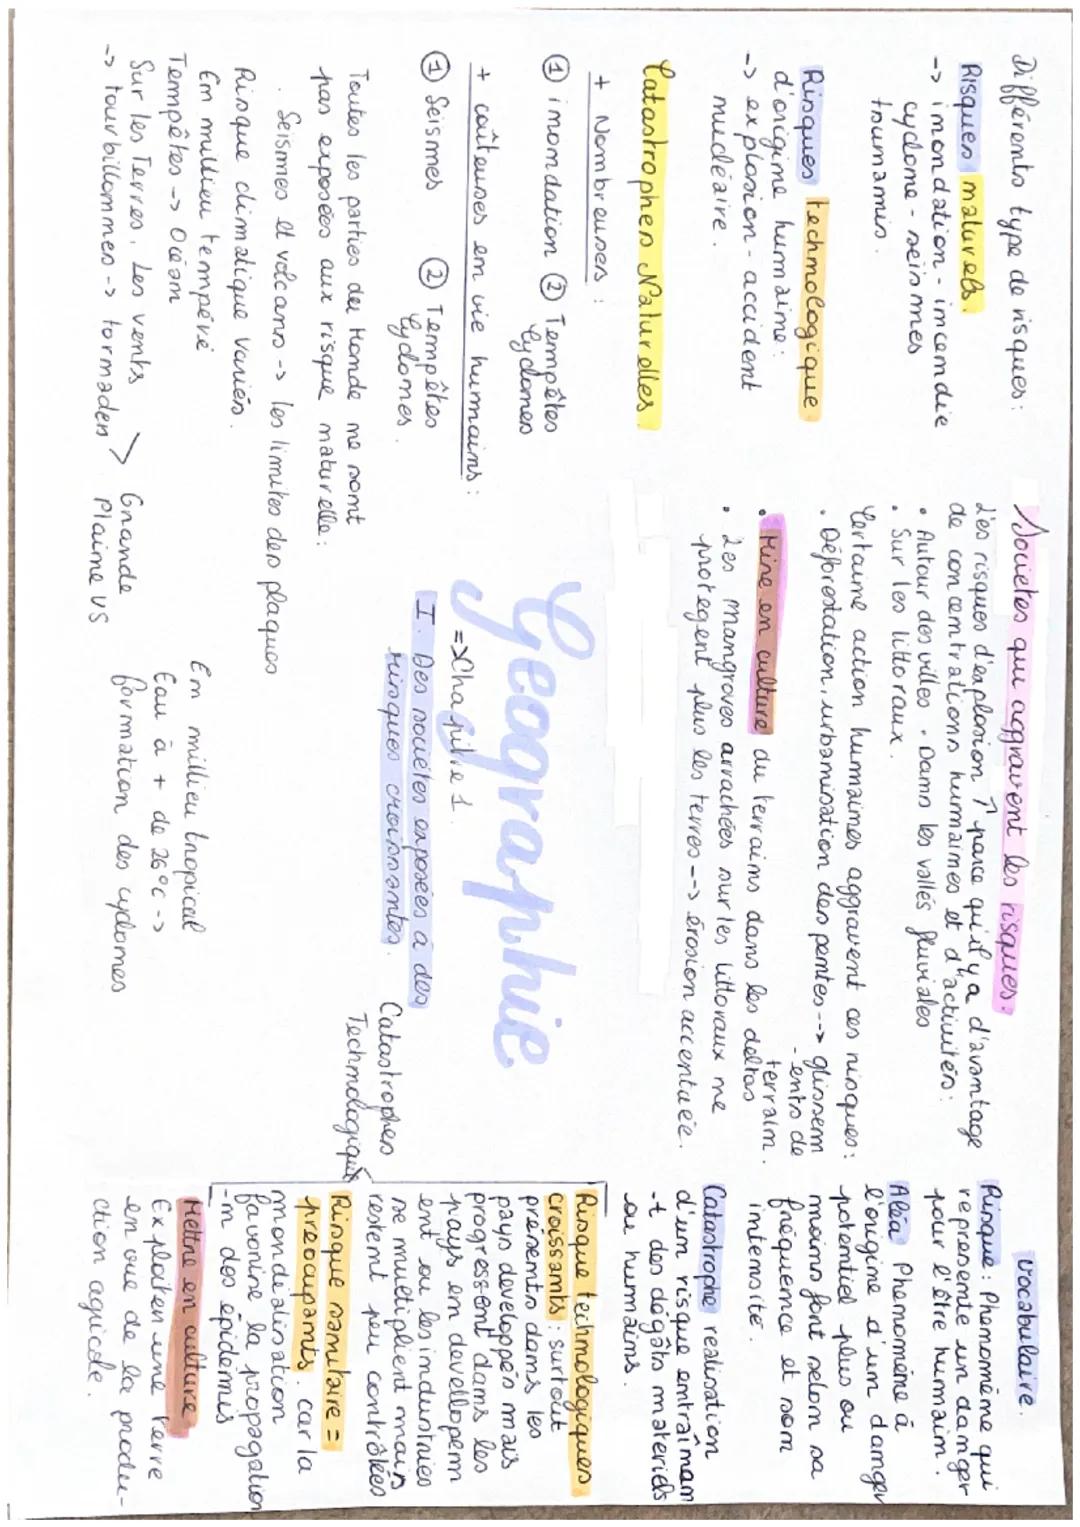 Différents type de risques :
Risques naturels.
-> inondation - incendie
cyclone - seismes
tsunamis.
Risques technologique
d'origine humaine :
-> explosion - accident
nucléaire.
Catastrophes Naturelles
+ Nombreuses :
① inondation ② Tempêtes
Cyclones
+ coûteuses en vie humains :
① Seismes ② Tempêtes
Cyclones.
Toutes les parties du Monde ne sont
pas exposées aux risque naturelle :
. Seismes et volcans -> les limites des plaques
Risque climatique variés.
En millieu tempéré
Tempêtes -> Océan
Sur les Terres. Les vents
-> tourbillonnes -> tornades > Grande
Plaine US
En millieu tropical
Eau à + de 26°C ->
formation des cyclones
Geographie
=> Chapitre 1.
I. Des sociétes exposées à des
risques croissantes.
Societes qui aggravent les risques.
Les risques d'explosion ↑ parce qu'il y a d'avantage
de concentrations humaines et d'activités :
• Autour des villes . Dans les vallés fluviales
• Sur les littoraux.
Certaine action humaines aggravent ces risques :
. Déforestation, urbanisation des pentes --> glissem
-ents de
terrain.
• Mise en culture du terrains dans les deltas
• Les mangroves arrachées sur les littoraux ne
protegent plus les terres --> érosion accentuée.
Vocabulaire.
Risque : Phenomème qui
represente un danger
pour l'être humain.
Aléa Phenomème à
l'origine d'un danger
potentiel plus ou
moins fort selon sa
fréquence et son
intensité.
Catastrophe realisation
d'un risque entraînan
-t des dégâts materiels
ou humains.
Catastrophes
Technologiques
Risque technologiques
croissants : surtout
présents dans les
pays developpés mais
progressent dans les
pays en developpem
ent ou les industries
se multiplient mais
restent peu contrôlées
Risque sanitaire =
preocupants. car la
mondialisation
favorise la propagation
-n des épidémis
Mettre en culture
Exploiter une terre
en vue de la produ-
ction agicole.